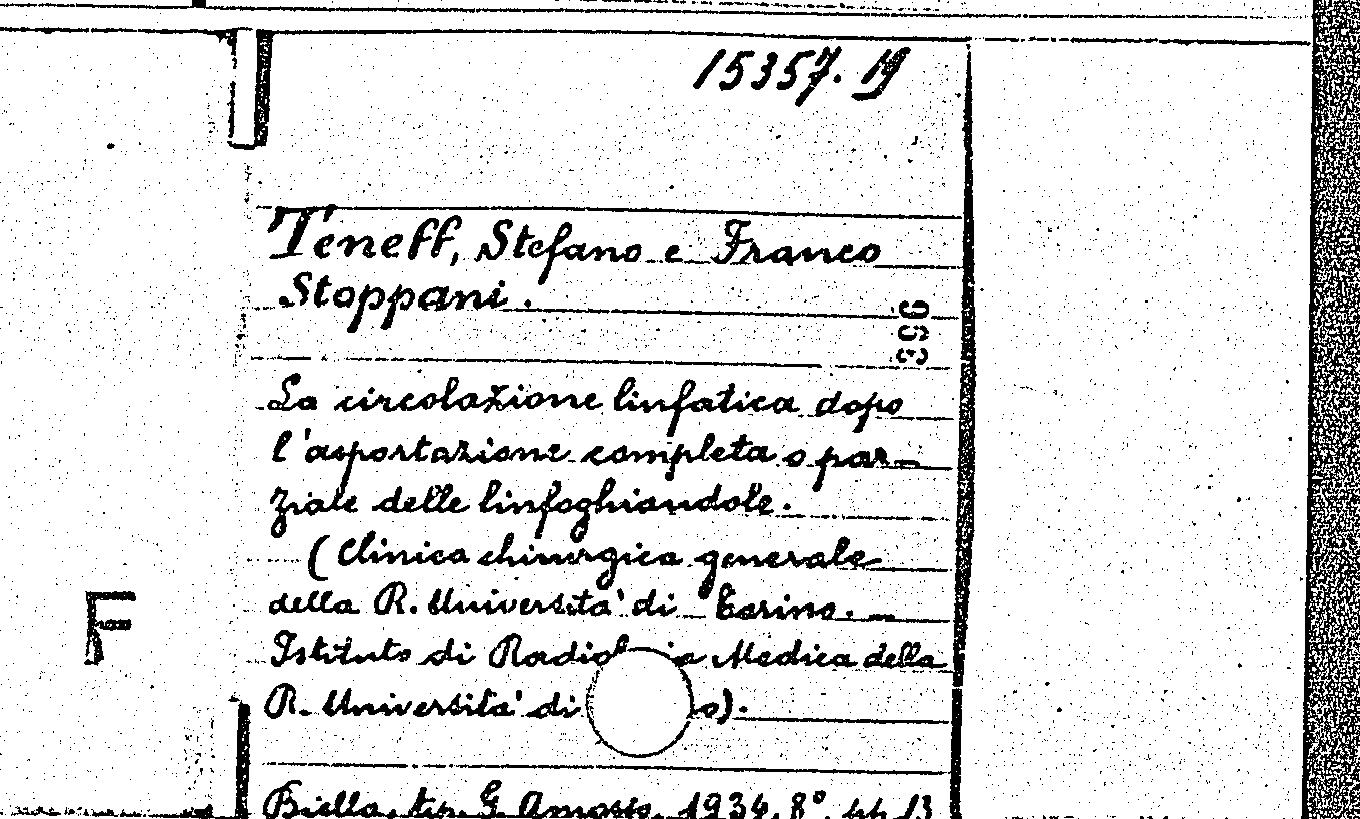 15357. 19
Teneff, Stefano e Franco
Stoppani.
396
La circolazione linfatica dopo
l'asportazione completa o par-
ziale delle linfoghiandole.
(Clinica chirurgica generale
della R. Università di Torino. —
Istituto di Medica della
R. Università di o).
F
Biella, tip. G. Amosso, 1934, 8°, pp 13